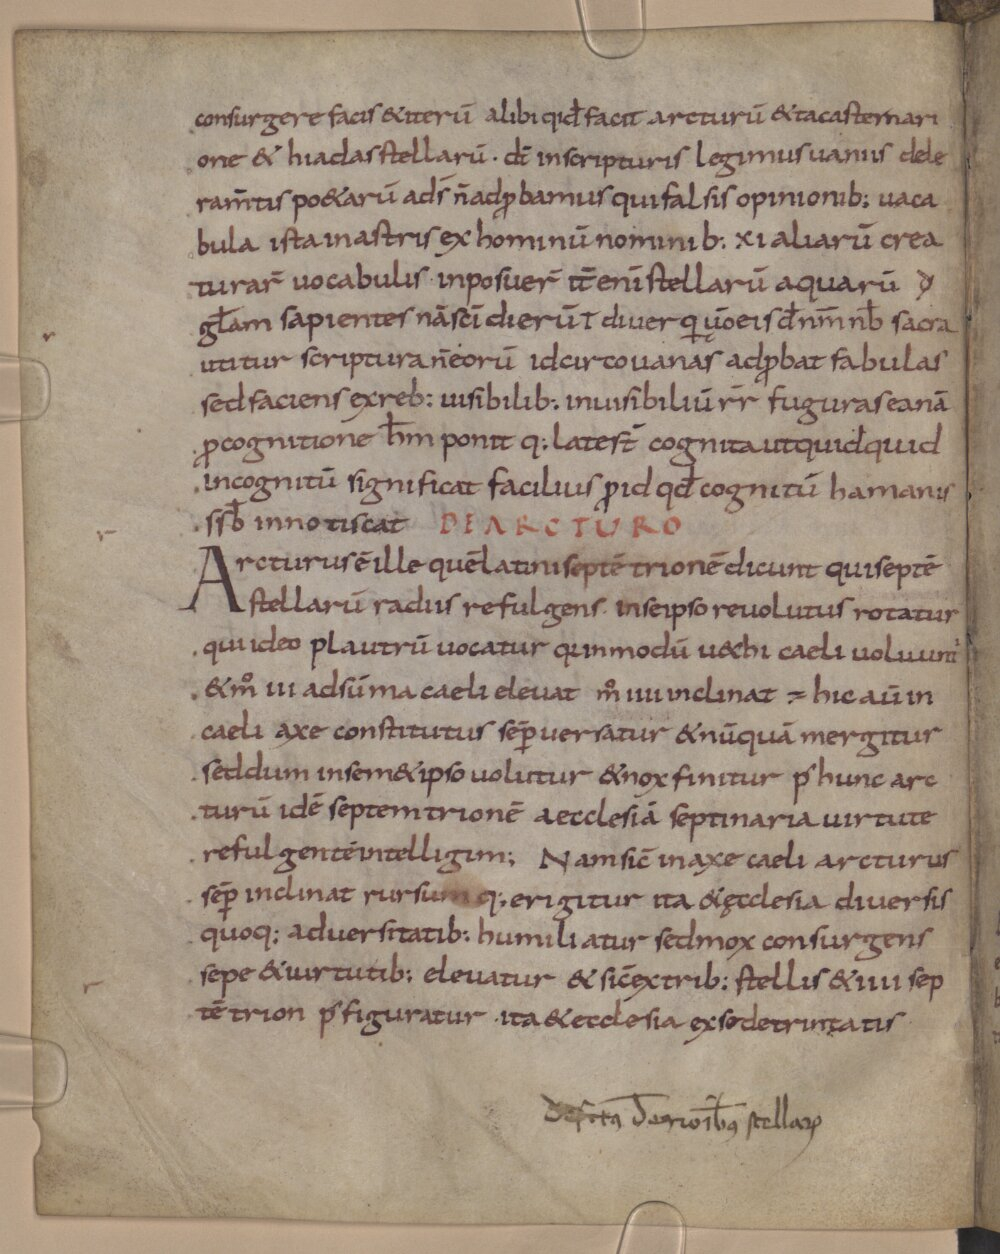 consurgere facis &iterū alibi qđ facit arcturū &tacasternari
one & hiadas stellarū · dt̄ inscripturis legimus uanus dele
ram̄tis po&arū ads̄ n̄adꝓbamus qui falsis opinionib; uaca
bula ista inastris ex hominū nominib; xi aliarū crea
turar̄ uocabulis inposuer̄ tt̄ eni stellarū aquarū
gl̄am sapientes nā sc̄i dierū diuer eis sacra
utitur scriptura n̄ eorū idcirco uanas adꝓbat fabulas
sed faciens exreb; uisibilib; inuisibiliū rr̄ fuguras eanā
ꝓcognitione hm̄ ponit q; latest̄ cognita utquidquid
incognitū significat facilius ꝑ id qđ cognitū hamanis
ss̄b innotiscat DE ARCTURO
Arcturus ē ille quē latini septē trionē dicunt qui septē
stellarū radiis refulgens inseipso reuolutus rotatur
qui ideo plautrū uocatur q inmodū uehi caeli uoluunt
&m̊ iii adsūma caeli eleuat m̊ iiii inclinat hic aū in
caeli axe constitutus sēꝑ uersatur &nūquā mergitur
sed dum insem&ipso uolutur &nox finitur ꝑ hunc arc
turū idē septemtrionē aecclesiā septinaria uirtute
refulgentē intelligim; Nam sic̄ inaxe caeli arcturus
sēꝑ inclinat rursum q; erigitur ita &ęcclesia diuersis
quoq; aduersitatib; humiliatur sed mox consurgens
sepe &uirtutib; eleuatur & sic̄ extrib; stellis &iiii sep
tē trion ꝑfiguratur ita &ecclesia exsedetrinitatis
stellaꝝ